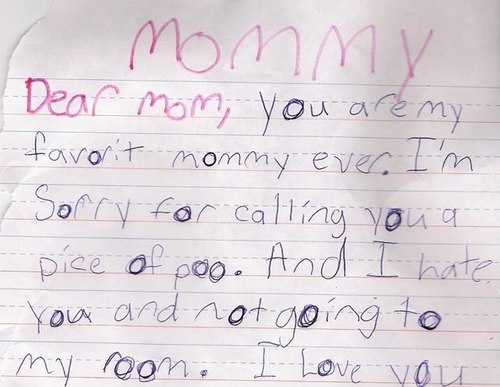 Mommy
Dear mom, you are my
favorit mommy ever. I'm
Sorry for calling you a
pice of poo. And I hate
you and not going to
my room. I Love you